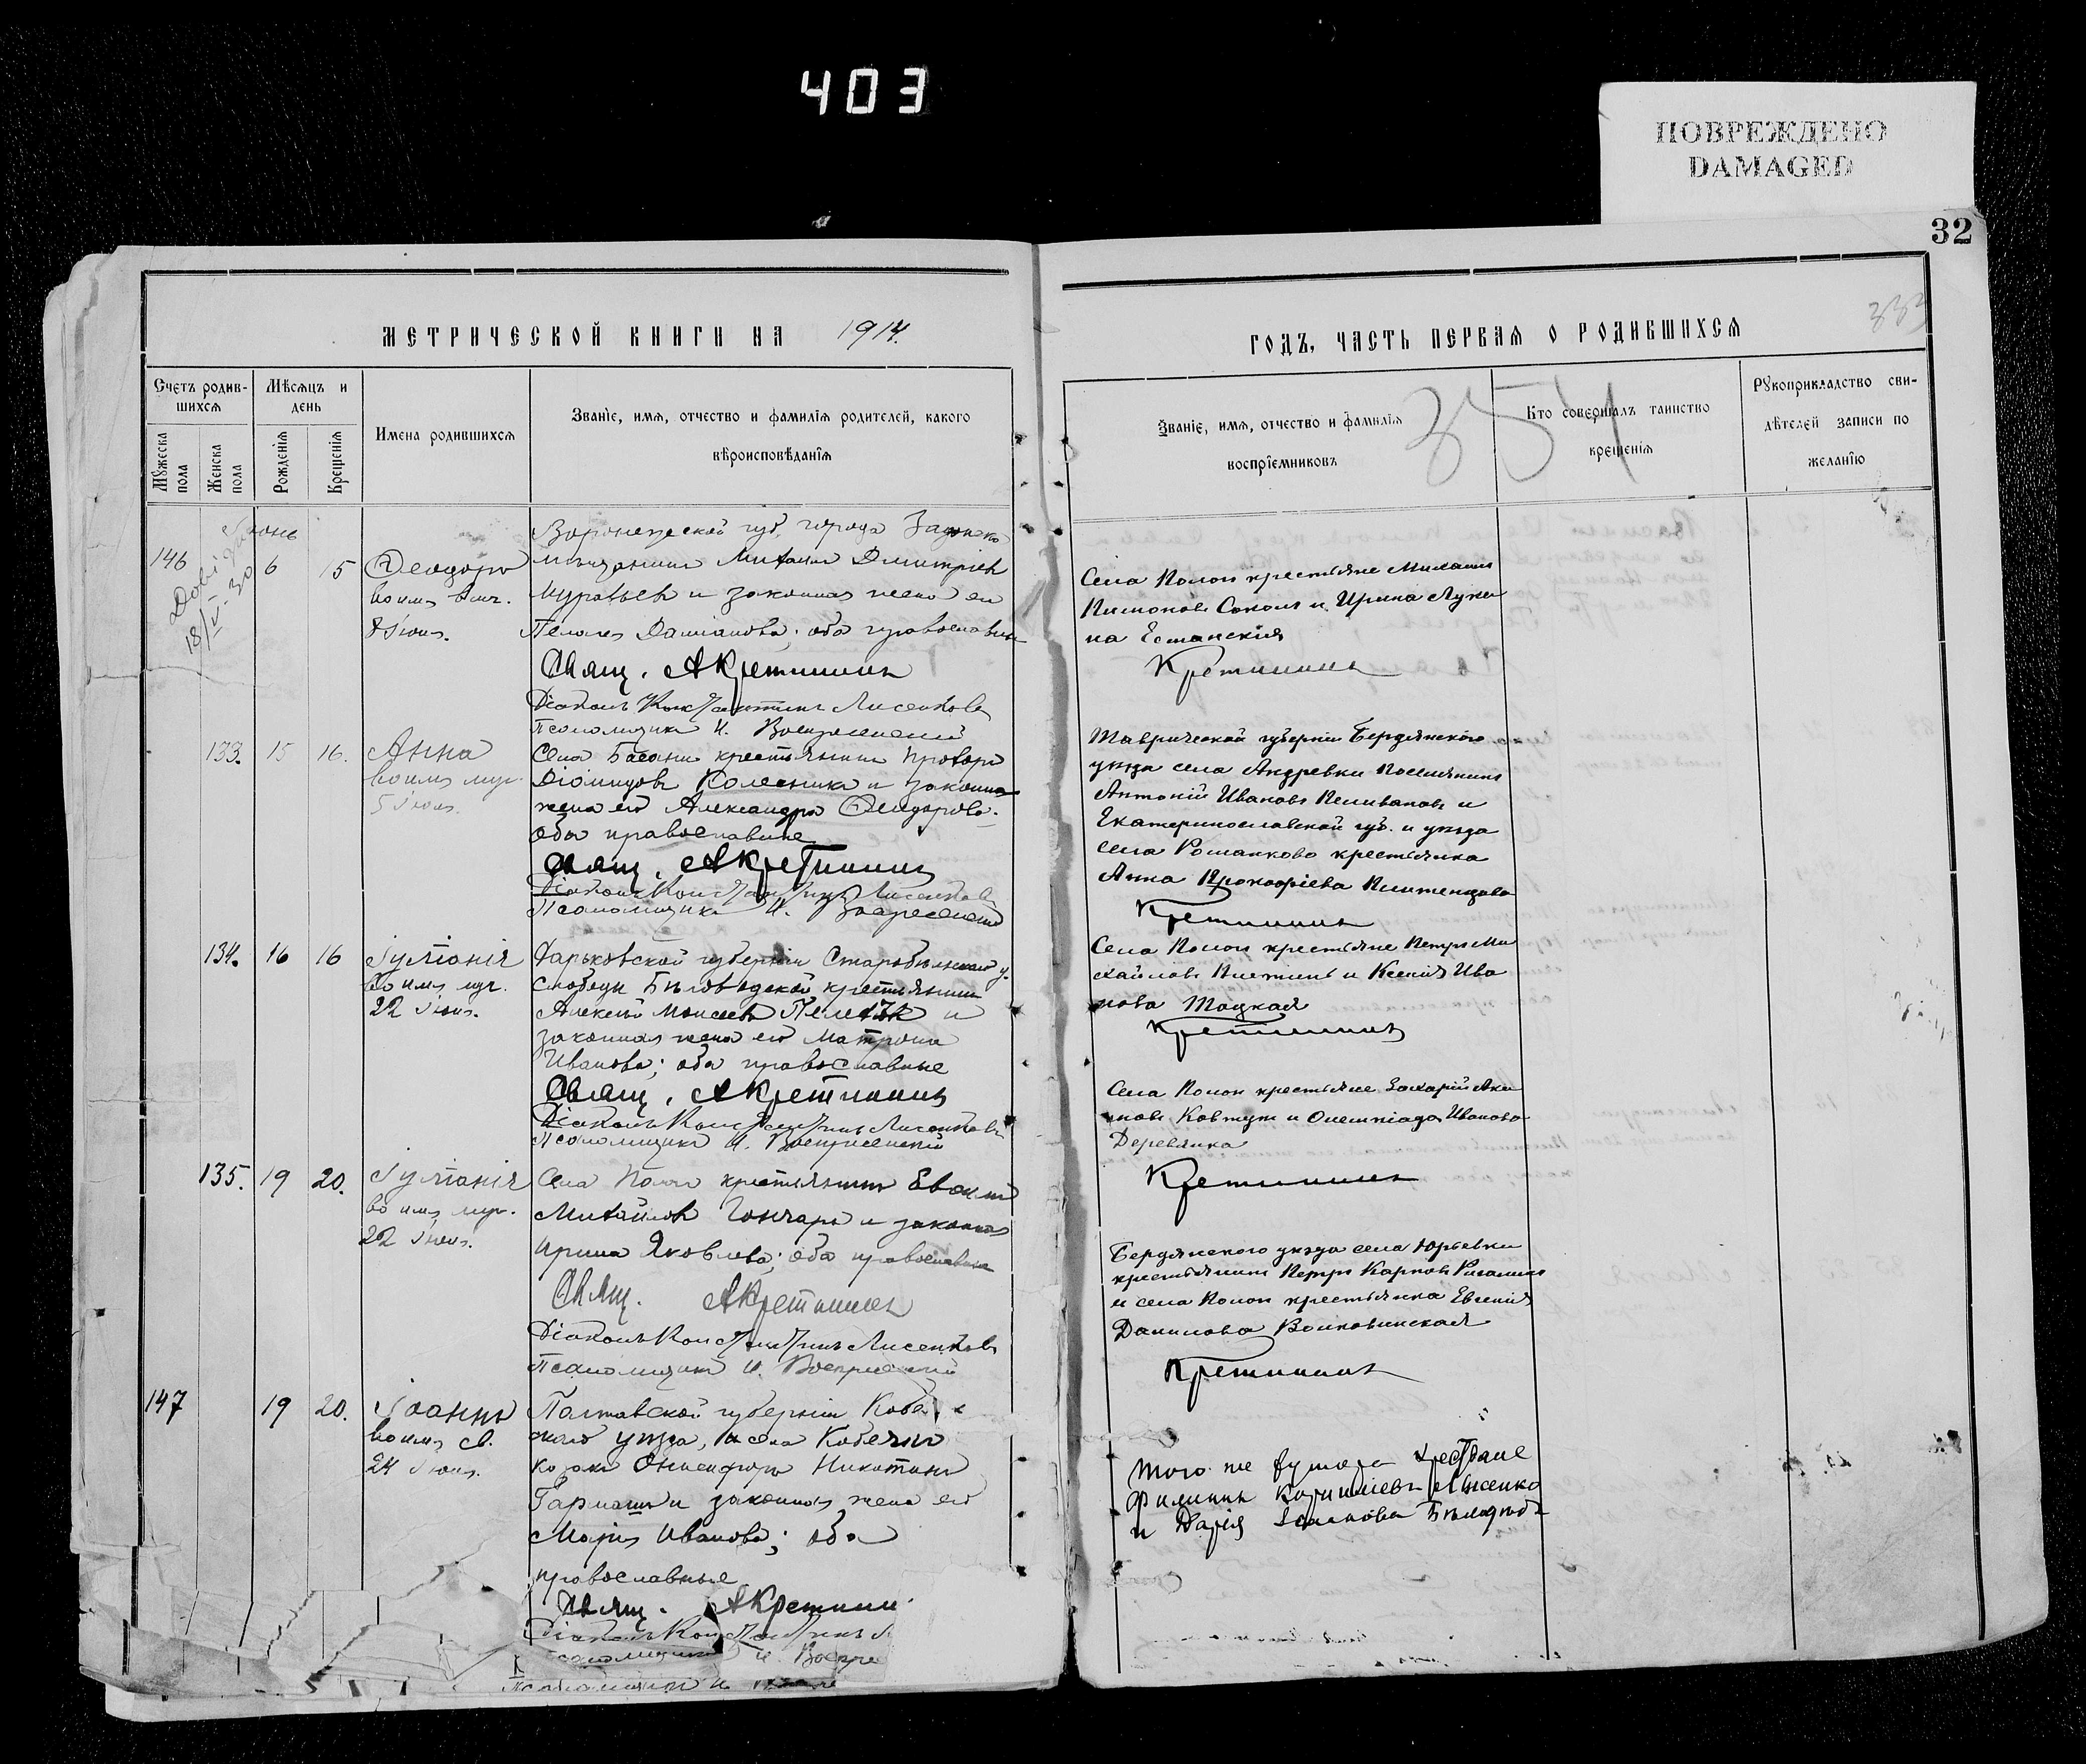 403
ПОВРЕЖДЕНО
DAMAGED
32
МЕТРИЧЕСКОЙ КНИГИ НА 1914.
ГОДЪ, ЧАСТЬ ПЕРВАЯ О РОДИВШИХСЯ
354
Счетъ родив-
шихся
Мѣсяцъ и
день
Мужеска
пола
Женска
пола
Рожденія
Крещенія
Имена родившихся
Званіе, имя, отчество и фамилія родителей, какого
вѣроисповѣданія
Званіе, имя, отчество и фамилія
воспріемниковъ
Кто совершалъ таинство
крещенія
Рукоприкладство сви-
дѣтелей записи по
желанію
Іюнь
18/V-30
146 6 15 Ѳеодоръ
во имя
8 Іюня.
Воронежской губ. города
мѣщанинъ Михаилъ Дмитріевъ
Муравьевъ и законная жена его
Даміанова; оба православные
Свящ. А Кретининъ
Діаконъ Константинъ Лисенковъ
Псаломщикъ И. Воскресенскій
Села Пологъ крестьяне
Соколъ и Ирина
Кретининъ
133. 15 16. Анна
во имя муч.
5 Іюля.
Села Басань крестьянинъ
Діомидовъ Колесникъ и законная
жена его Александра Ѳеодорова.
оба православные
Свящ. А Кретининъ
Діаконъ Константинъ Лисенковъ
Псаломщикъ И. Воскресенскій
Таврической губерніи Бердянскаго
уѣзда села Андревки поселянинъ
Антоній Ивановъ Селивановъ и
Екатеринославской губ. и уѣзда
села Романково крестьянка
Анна Прокофіева
Кретининъ
134. 16 16 Іуліанія
во имя муч.
22 Іюня.
Харьковской губерніи Старобѣльскаго у.
слободы Бѣловодской крестьянинъ
Алексѣй Моисеевъ и
законная жена его Матрона
Иванова; оба православные
Свящ. А Кретининъ
Діаконъ Константинъ Лисенковъ
Псаломщикъ И. Воскресенскій
Села Пологъ крестьяне Петръ Ми
хайловъ и Ксенія Ива
нова
Кретининъ
135. 19 20. Іуліанія
во имя муч.
22 Іюня.
Села Пологъ крестьянинъ
Михайловъ Гончаръ и законная
Ирина Яковлева; оба православные
Свящ. А Кретининъ
Діаконъ Константинъ Лисенковъ
Псаломщикъ И. Воскресенскій
Села Пологъ крестьяне Захарій
Ковтунъ и Олимпіада Иванова
Деревянка
Кретининъ
147 19 20. Іоаннъ
во имя св.
24 Іюня.
Полтавской губерніи
скаго уѣзда, села Кобелякъ
козакъ Никитинъ
Гармашъ и законная жена его
Марія Иванова; оба
православные
Свящ. А Кретинин
Діаконъ Константинъ Л
И. Воскре
Бердянского уѣзда села Юрьевки
крестьянинъ Петръ Карповъ
и села Пологъ крестьянка Евгенія
Данилова Волковинская
Кретининъ
Того же хутора крестьяне
Филиппъ Лысенко
и Дарія